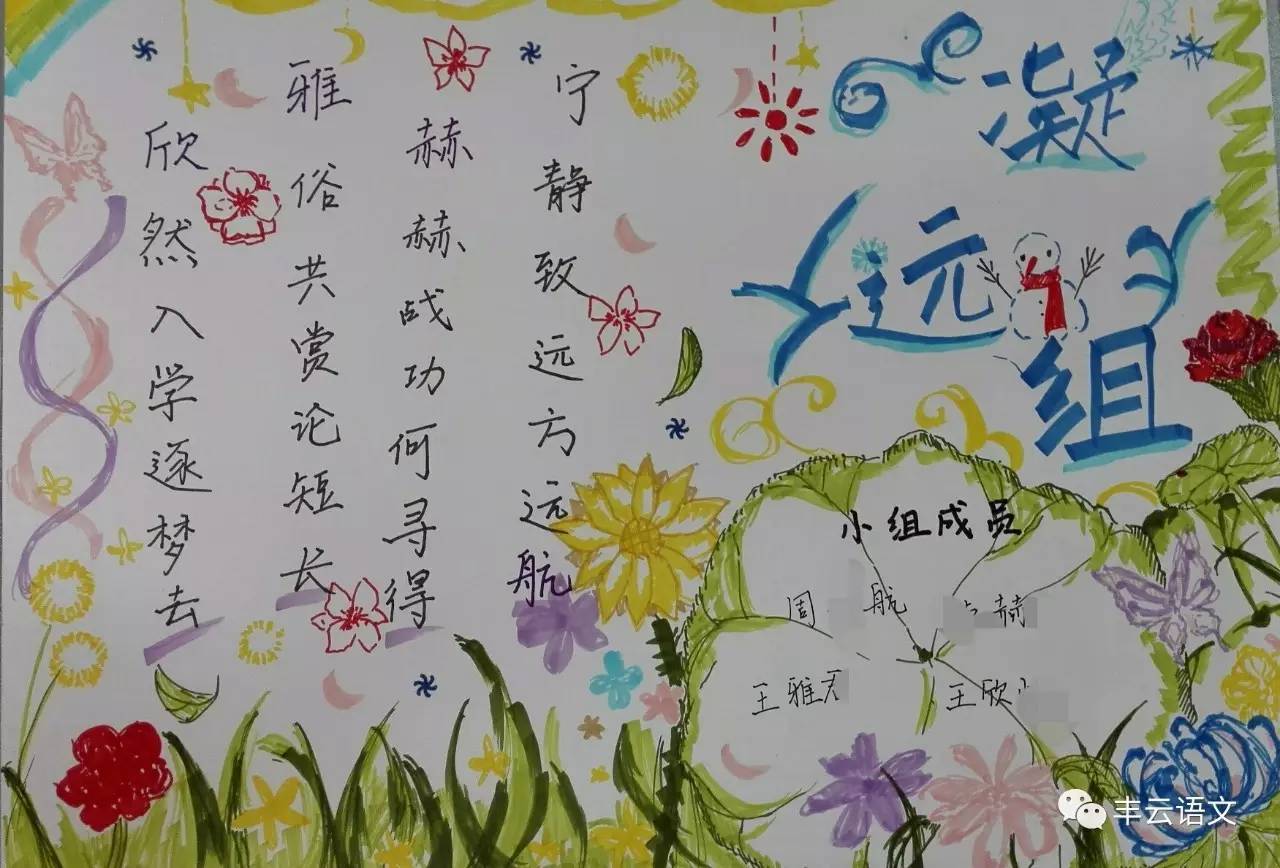 凝
远
组
宁静致远方远航
赫赫战功何寻得
雅俗共赏论短长
欣然入学逐梦去
小组成员
周 航
赫
王雅
王欣
丰云语文